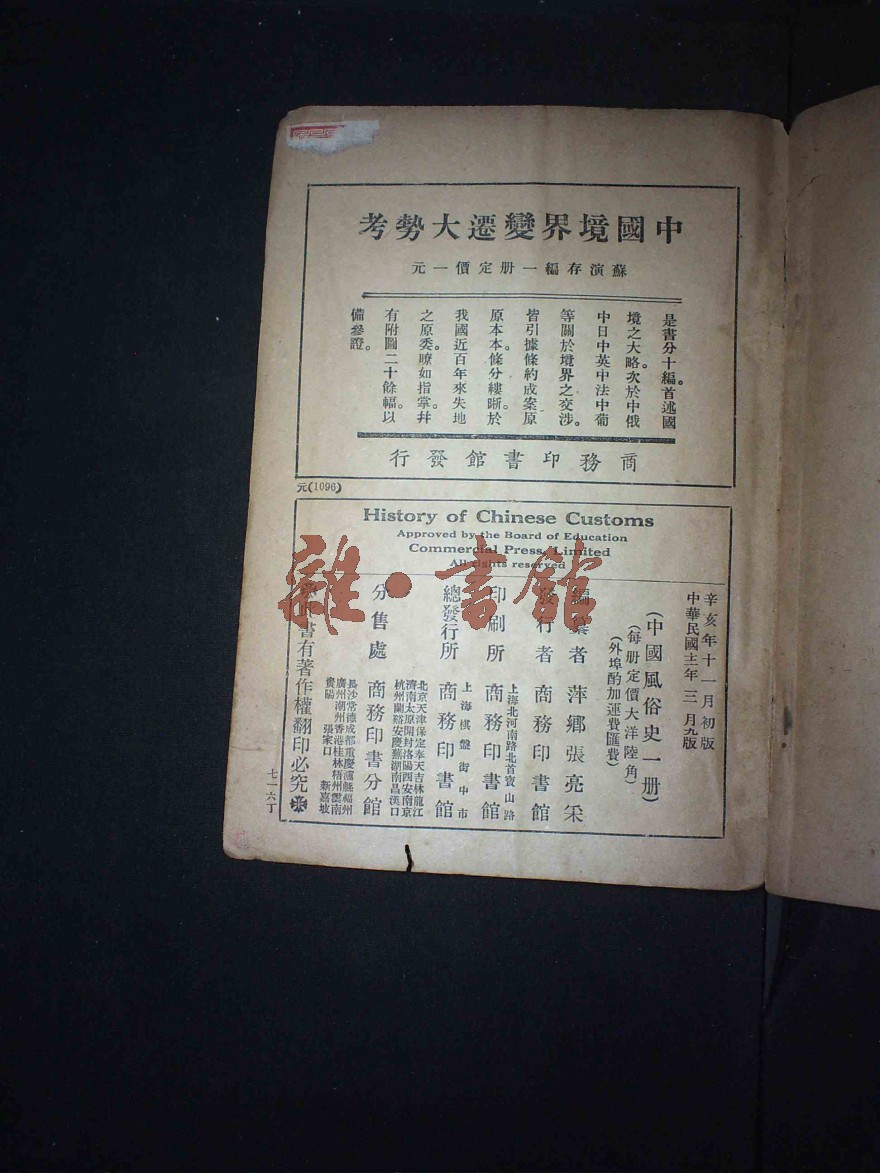 中國境界變遷大勢考
蘇演存編一册定價一元
是書分十編。首述國
境之大略。次於中俄
中日中英中法中葡
等關於境界之交涉。
皆引據條約成案原
原本本。條分縷晰。於
我國近百年來失地
之原委。瞭如指掌。幷
有附圖二十餘幅。以
備參證。
商務印書館發行
元(1096)
History of Chinese Customs
Approved by the Board of Education
Commercial Press, Limited
All rights reserved
辛亥年十一月初版
中華民國十二年三月九版
(中國風俗史一册)
(每册定價大洋陸角)
(外埠酌加運費匯費)
編纂者 萍鄉張亮采
發行者 商務印書館
上海北河南路北首寶山路
印刷所 商務印書館
上海棋盤街中市
總發行所 商務印書館
北京天津保定奉天吉林龍江
濟南太原開封洛陽西安南京
杭州蘭谿安慶蕪湖南昌漢口
分售處 商務印書分館
長沙常德成都重慶瀘縣福州
廣州潮州香港桂林梧州雲南
貴陽 張家口 新嘉坡
書有著作權翻印必究
七一六丁
雜·書館